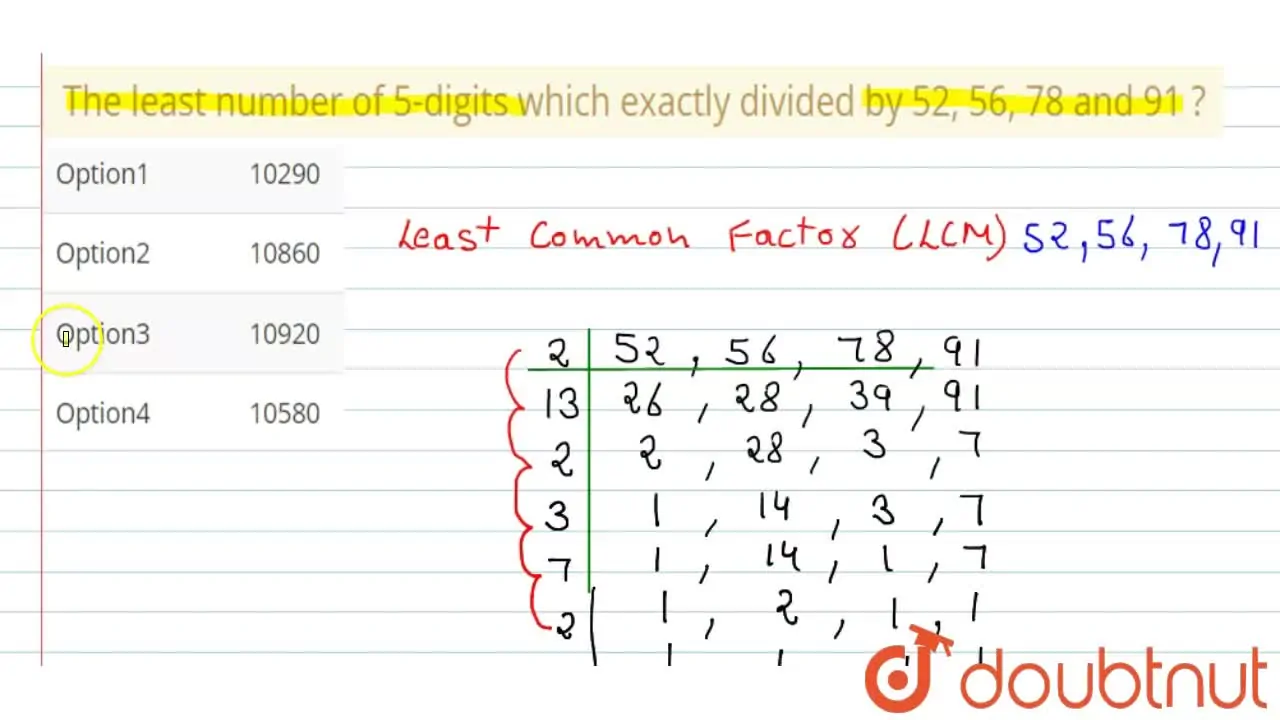 The least number of 5-digits which exactly divided by 52, 56, 78 and 91 ?
Option1 10290
Option2 10860
Option3 10920
Option4 10580
Least Common Factor (LCM) 52, 56, 78, 91
2 52, 56, 78, 91
13 26, 28, 39, 91
2 2, 28, 3, 7
3 1, 14, 3, 7
7 1, 14, 1, 7
2 1, 2, 1, 1
doubtnut